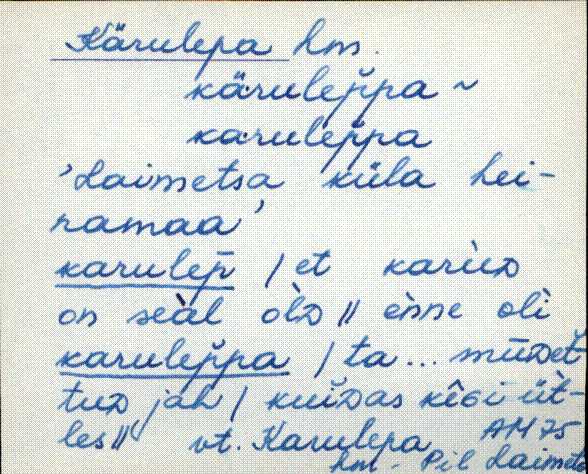 Kärulepa hm.
kärulep̆pa ~
karulep̆pa
'Laimetsa küla hei-
namaa'
karulep̆ / et karùD
on seàl òlD // ènne olì
karulep̆pa / ta... mùDet-
tuD jah / kuìDas kêGi üt-
les // vt. Karulepa AM 75
hm - Pil Laimets